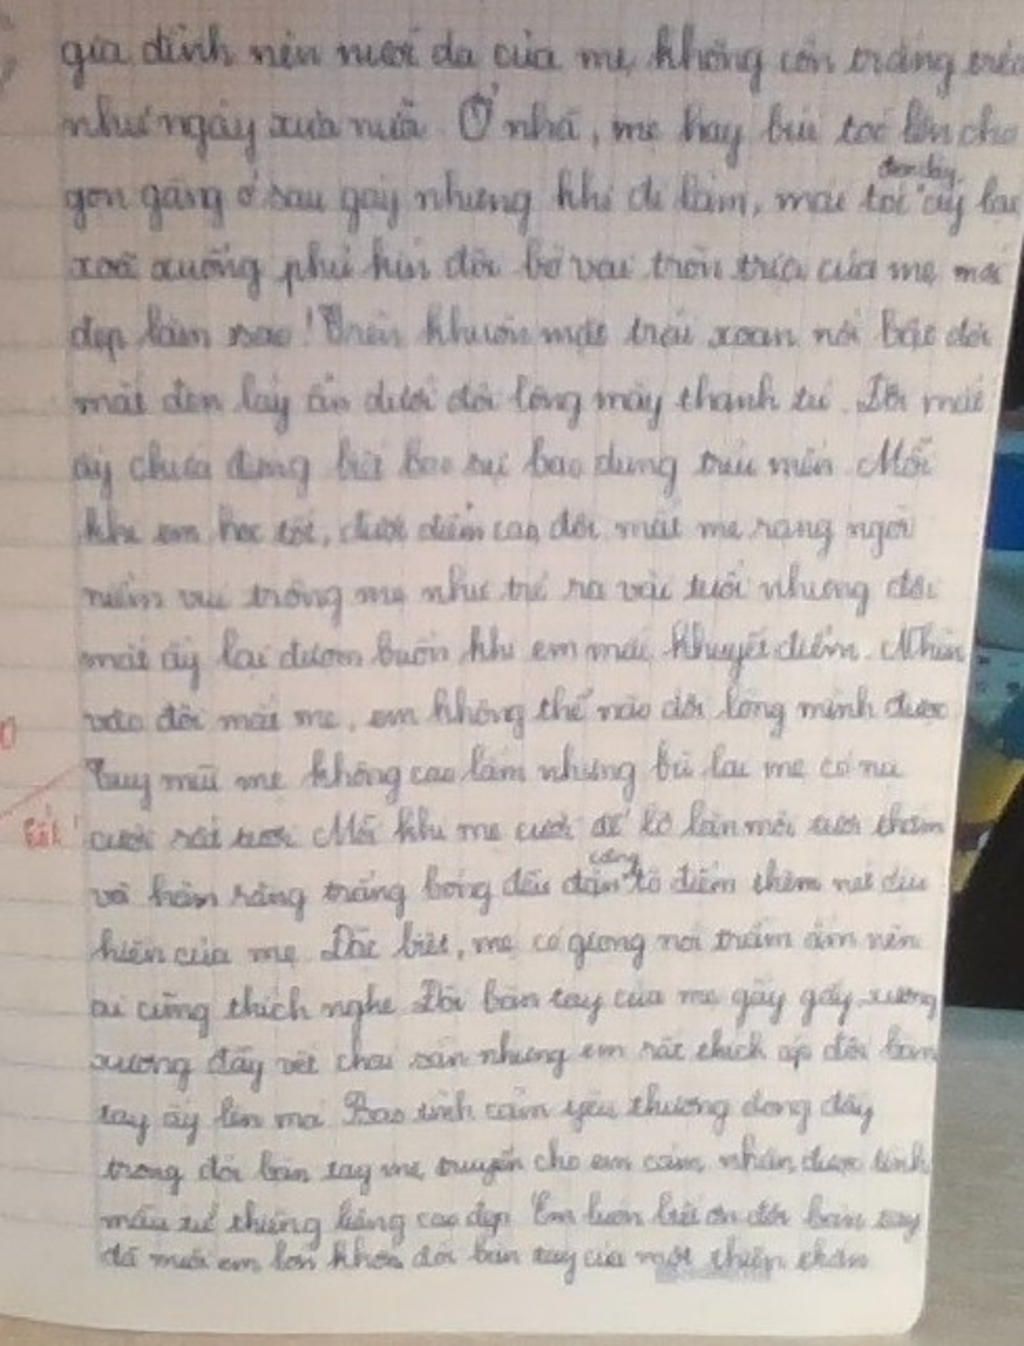 gia đình nên nươc da của mẹ không còn trắng trẻo
như ngày xưa nữa. Ở nhà, mẹ hay búi tóc lên cho
gọn gàng ở sau gáy nhưng khi đi làm, mái tóc đen dày ấy lại
xoã xuống phủ kín đôi bờ vai tròn trịa của mẹ mới
đẹp làm sao! Trên khuôn mặt trái xoan nổi bật đôi
mắt đen láy ẩn dưới đôi lông mày thanh tú. Đôi mắt
ấy chứa đựng biết bao sự bao dung trìu mến. Mỗi
khi em học tốt, được điểm cao, đôi mắt mẹ rạng ngời
niềm vui trông mẹ như trẻ ra vài tuổi nhưng đôi
mắt ấy lại đượm buồn khi em mắc khuyết điểm. Nhìn
vào đôi mắt mẹ, em không thể nào dối lòng mình được.
Tuy mũi mẹ không cao lắm nhưng bù lại mẹ có nụ
cười rất tươi. Mỗi khi mẹ cười để lộ làn môi tươi thắm
và hàm răng trắng bóng đều đặn càng tô điểm thêm nét dịu
hiền của mẹ. Đặc biệt, mẹ có giọng nói trầm ấm nên
ai cũng thích nghe. Đôi bàn tay của mẹ gầy gầy, xương
xương đầy vết chai sạn nhưng em rất thích áp đôi bàn
tay ấy lên má. Bao tình cảm yêu thương đong đầy
trong đôi bàn tay mẹ truyền cho em cảm nhận được tình
mẫu tử thiêng liêng cao đẹp. Em luôn biết ơn đôi bàn tay
đã nuôi em lớn khôn đôi bàn tay của một thiên thần